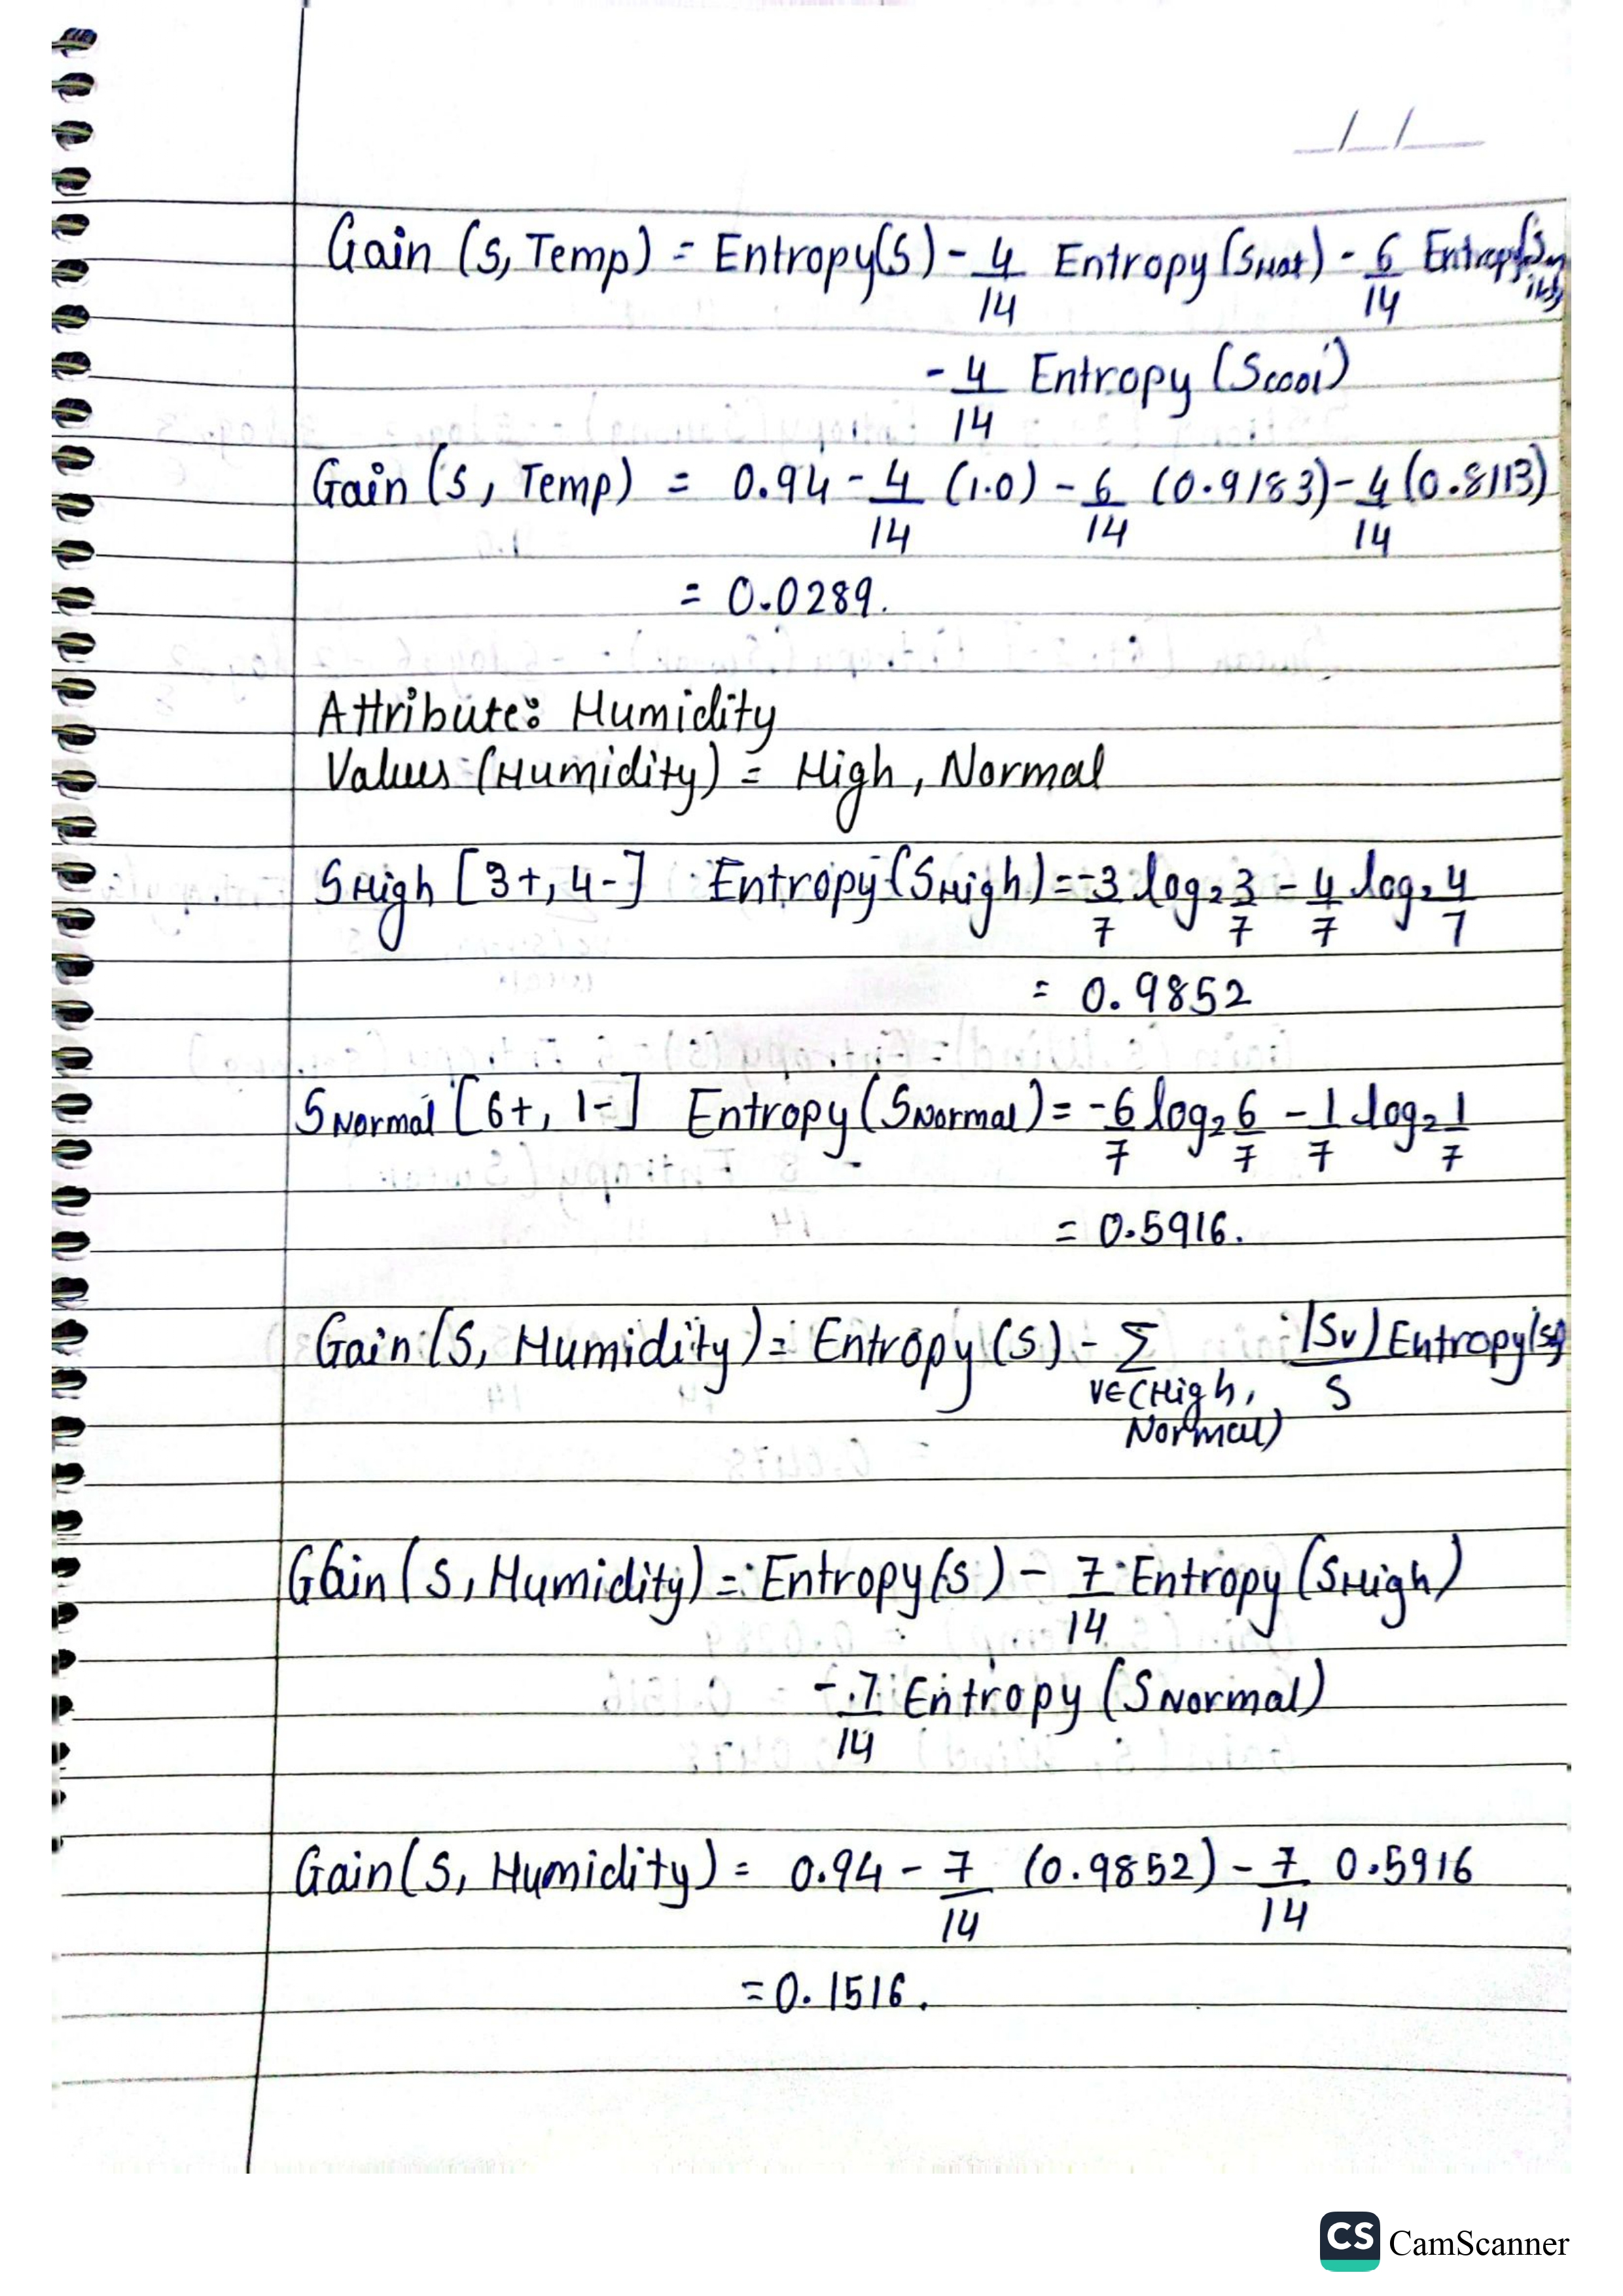 _/_/__
Gain (S, Temp) = Entropy(S) - 4/14 Entropy (SHot) - 6/14 Entropy(Smild)
- 4/14 Entropy (Scool)
Gain (S, Temp) = 0.94 - 4/14 (1.0) - 6/14 (0.9183) - 4/14 (0.8113)
= 0.0289.
Attribute: Humidity
Values (Humidity) = High, Normal
SHigh [3+, 4-] Entropy (SHigh) = -3/7 log2 3/7 - 4/7 log2 4/7
= 0.9852
SNormal [6+, 1-] Entropy (SNormal) = -6/7 log2 6/7 - 1/7 log2 1/7
= 0.5916.
Gain (S, Humidity) = Entropy (S) - Σ |Sv|/S Entropy(Sv)
VE(High,
Normal)
Gain (S, Humidity) = Entropy (S) - 7/14 Entropy (SHigh)
- 7/14 Entropy (SNormal)
Gain (S, Humidity) = 0.94 - 7/14 (0.9852) - 7/14 0.5916
= 0.1516.
CS CamScanner